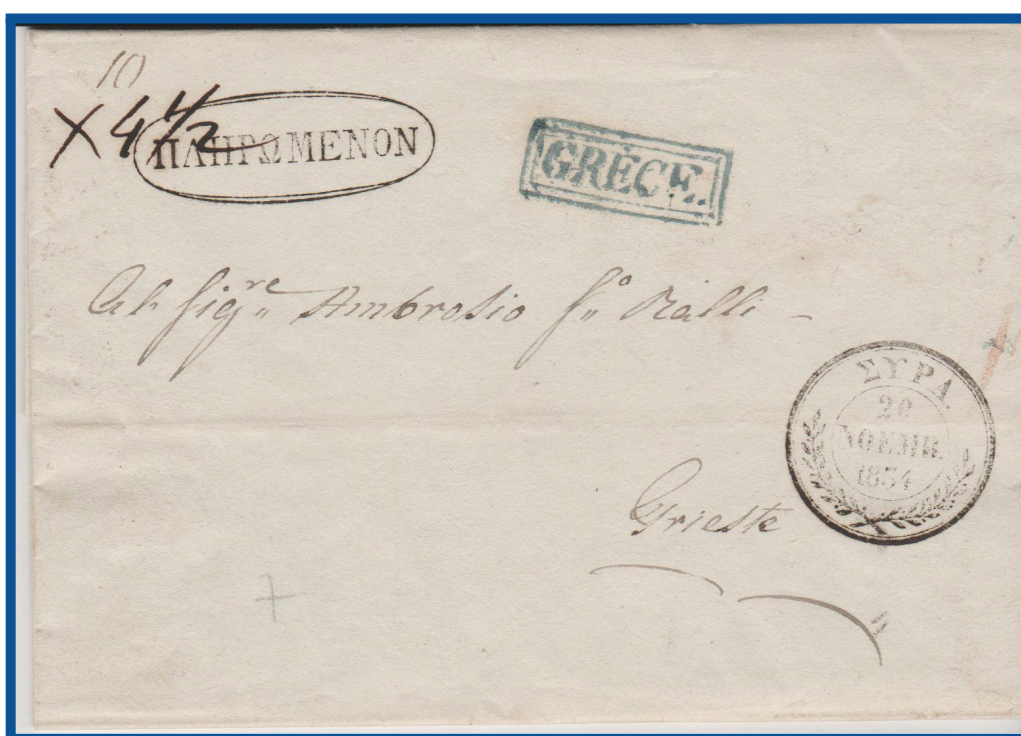 10
X 4 1/2
ΠΛΗΡΩΜΕΝΟΝ
GRÈCE.
Al Sigre Ambrosio fo Ralli
ΣΥΡΑ.
20
ΝΟΕΜΒ.
1834
Trieste